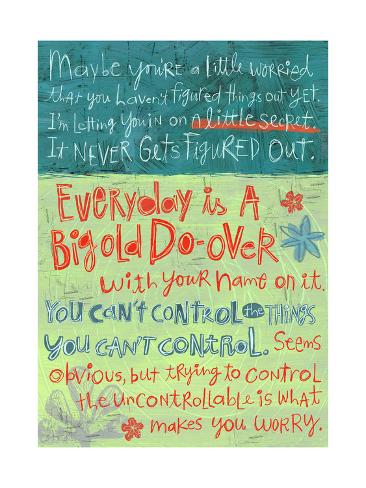 Maybe you're a little worried
that you haven't figured things out yet.
I'm letting you in on a little secret.
It never gets figured out.
Everyday is A
Big old Do-over
with your name on it.
You can't control the things
you can't control. Seems
obvious, but trying to control
the uncontrollable is what
makes you worry.